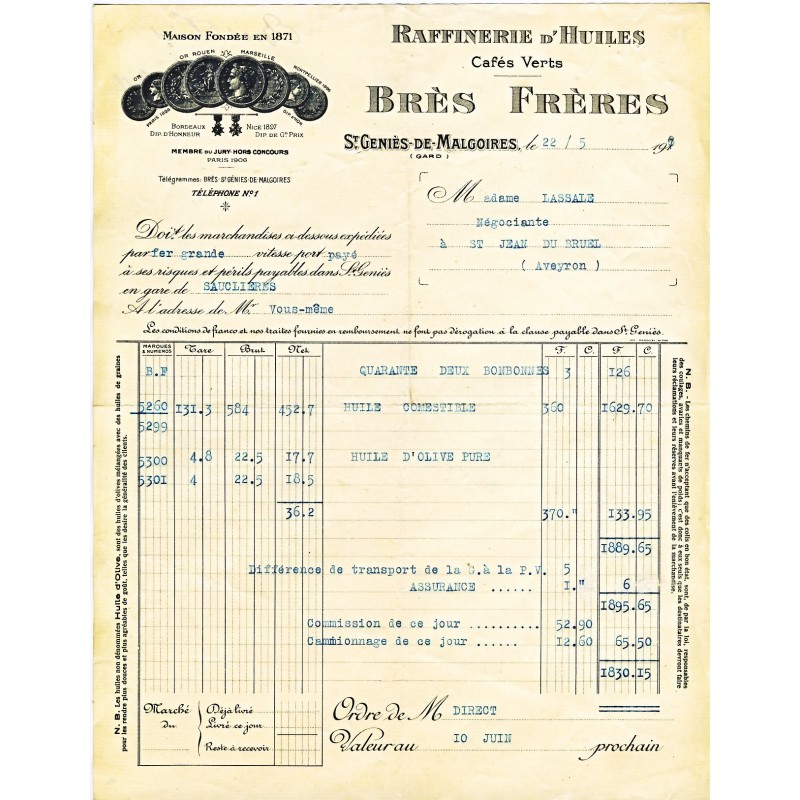 MAISON FONDÉE EN 1871
OR
OR ROUEN
MARSEILLE
BORDEAUX
DIP. D'HONNEUR
NICE 1897
DIP DE Gᵈ PRIX
MEMBRE DU JURY-HORS CONCOURS
PARIS 1906
Télégrammes: BRÈS-Sᵗ GÉNIES-DE-MALGOIRES
TÉLÉPHONE Nº1
RAFFINERIE D'HUILES
Cafés Verts
BRÈS FRÈRES
Sᵗ GENIÈS-DE-MALGOIRES, le 22 / 5 19
(GARD)
Madame LASSALE
Négociante
à ST JEAN DU BRUEL
( Aveyron )
Doit les marchandises ci-dessous expédiées
par fer grande vitesse port payé
à ses risques et périls payables dans Sᵗ Geniès
en gare de SAUCLIÈRES
A l'adresse de Mʳ Vous-même
Les conditions de franco et nos traites fournies en remboursement ne font pas dérogation à la clause payable dans Sᵗ Geniès.
MARQUES & NUMÉROS Tare Brut Net F. C. F. C.
B.F QUARANTE DEUX BONBONNES 3 126
5260 131.3 584 452.7 HUILE COMESTIBLE 360 1629.70
5299
5300 4.8 22.5 17.7 HUILE D'OLIVE PURE
5301 4 22.5 18.5
36.2 370." 133.95
1889.65
Différence de transport de la G. à la P.V. 5
ASSURANCE ...... 1." 6
1895.65
Commission de ce jour .......... 52.90
Cammionnage de ce jour ...... 12.60 65.50
1830.15
Marché du
Déjà livré
Livré ce jour
Reste à recevoir
Ordre de M DIRECT
Valeur au 10 JUIN prochain
N. B. - Les huiles non dénommées Huile d'Olive, sont des huiles d'olives mélangées avec des huiles de graines
pour les rendre plus douces et plus agréables de goût, telles que les désire la généralité des clients.
N. B. - Les chemins de fer n'acceptant que des colis en bon état, sont, de par la loi, responsables
des coulages, avaries et manquants de poids; c'est donc à eux seuls que les destinataires devront faire
leurs réclamations et leurs réserves avant l'enlèvement de la marchandise.